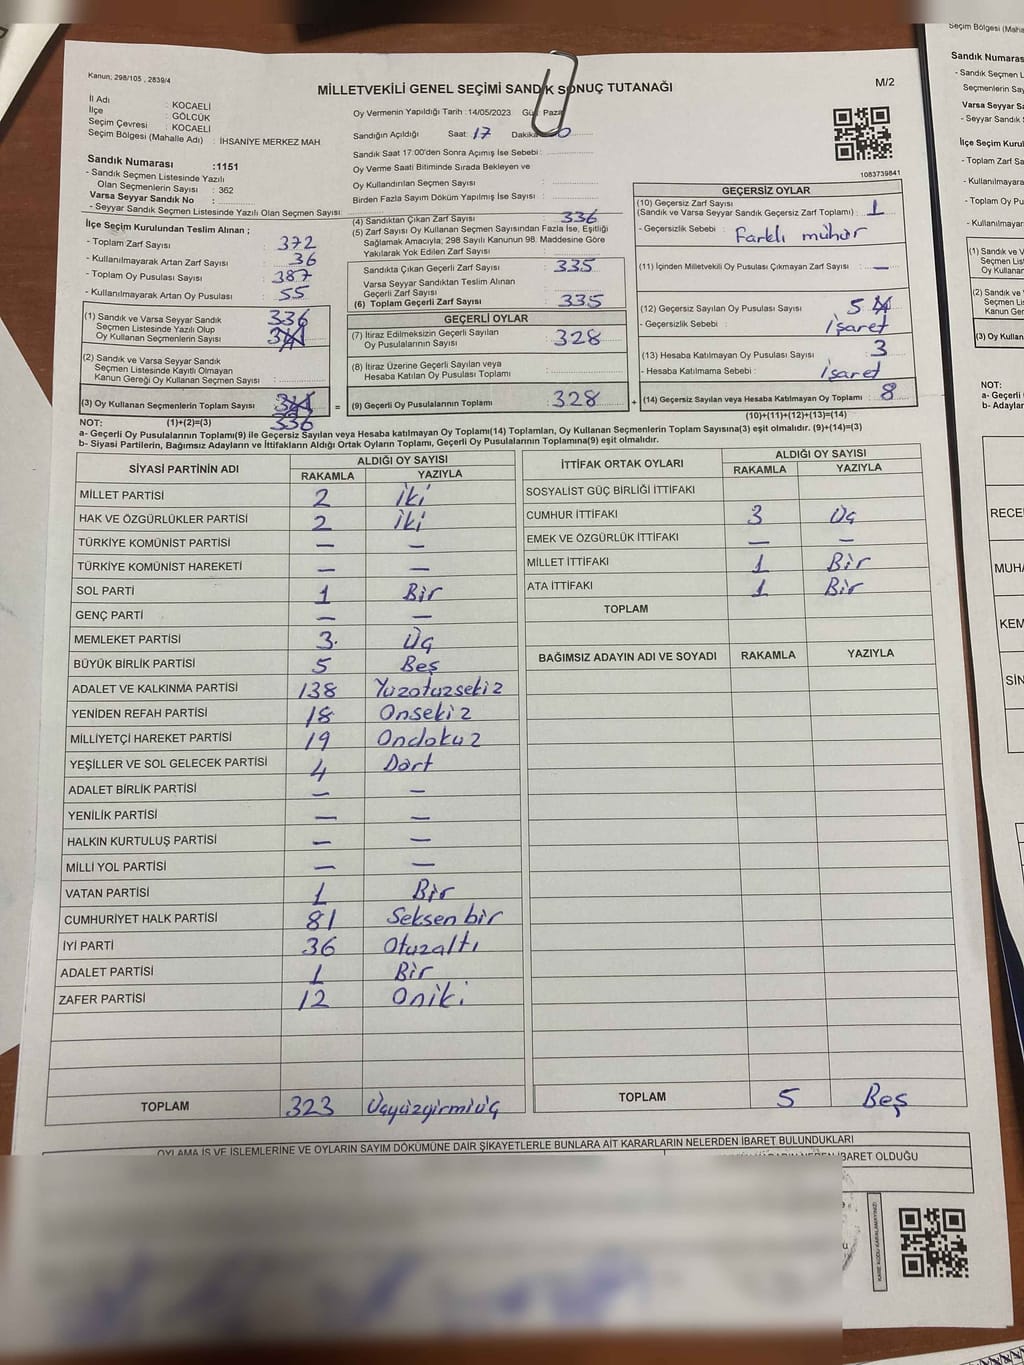 Kanun; 298/105 , 2839/4
MİLLETVEKİLİ GENEL SEÇİMİ SANDIK SONUÇ TUTANAĞI
M/2
İl Adı : KOCAELİ
İlçe : GÖLCÜK
Seçim Çevresi : KOCAELİ
Seçim Bölgesi (Mahalle Adı) : İHSANİYE MERKEZ MAH
Oy Vermenin Yapıldığı Tarih :14/05/2023
Sandığın Açıldığı Saat: 17 Dakika
Sandık Saat 17:00'den Sonra Açımış İse Sebebi :
Oy Verme Saati Bitiminde Sırada Bekleyen ve
Oy Kullandırılan Seçmen Sayısı :
Birden Fazla Sayım Döküm Yapılmış İse Sayısı :
1083739841
Sandık Numarası :1151
- Sandık Seçmen Listesinde Yazılı
Olan Seçmenlerin Sayısı : 362
Varsa Seyyar Sandık No :
- Seyyar Sandık Seçmen Listesinde Yazılı Olan Seçmen Sayısı:
İlçe Seçim Kurulundan Teslim Alınan ;
- Toplam Zarf Sayısı : 372
- Kullanılmayarak Artan Zarf Sayısı : 36
- Toplam Oy Pusulası Sayısı : 387
- Kullanılmayarak Artan Oy Pusulası : 55
(1) Sandık ve Varsa Seyyar Sandık 336
Seçmen Listesinde Yazılı Olup
Oy Kullanan Seçmenlerin Sayısı :
(2) Sandık ve Varsa Seyyar Sandık
Seçmen Listesinde Kayıtlı Olmayan
Kanun Gereği Oy Kullanan Seçmen Sayısı :
(3) Oy Kullanan Seçmenlerin Toplam Sayısı :
336
(4) Sandıktan Çıkan Zarf Sayısı : 336
(5) Zarf Sayısı Oy Kullanan Seçmen Sayısından Fazla İse, Eşitliği
Sağlamak Amacıyla; 298 Sayılı Kanunun 98. Maddesine Göre
Yakılarak Yok Edilen Zarf Sayısı :
Sandıkta Çıkan Geçerli Zarf Sayısı : 335
Varsa Seyyar Sandıktan Teslim Alınan
Geçerli Zarf Sayısı :
(6) Toplam Geçerli Zarf Sayısı : 335
GEÇERLİ OYLAR
(7) İtiraz Edilmeksizin Geçerli Sayılan
Oy Pusulalarının Sayısı : 328
(8) İtiraz Üzerine Geçerli Sayılan veya
Hesaba Katılan Oy Pusulası Toplamı :
= (9) Geçerli Oy Pusulalarının Toplamı : 328 +
GEÇERSİZ OYLAR
(10) Geçersiz Zarf Sayısı
(Sandık ve Varsa Seyyar Sandık Geçersiz Zarf Toplamı) : 1
- Geçersizlik Sebebi : Farklı mühür
(11) İçinden Milletvekili Oy Pusulası Çıkmayan Zarf Sayısı : —
(12) Geçersiz Sayılan Oy Pusulası Sayısı : 5
- Geçersizlik Sebebi : İşaret
(13) Hesaba Katılmayan Oy Pusulası Sayısı : 3
- Hesaba Katılmama Sebebi : İşaret
(14) Geçersiz Sayılan veya Hesaba Katılmayan Oy Toplamı : 8
NOT: (1)+(2)=(3)
(10)+(11)+(12)+(13)=(14)
a- Geçerli Oy Pusulalarının Toplamı(9) ile Geçersiz Sayılan veya Hesaba katılmayan Oy Toplamı(14) Toplamları, Oy Kullanan Seçmenlerin Toplam Sayısına(3) eşit olmalıdır. (9)+(14)=(3)
b- Siyasi Partilerin, Bağımsız Adayların ve İttifakların Aldığı Ortak Oyların Toplamı, Geçerli Oy Pusulalarının Toplamına(9) eşit olmalıdır.
SİYASİ PARTİNİN ADI ALDIĞI OY SAYISI
RAKAMLA YAZIYLA
MİLLET PARTİSİ 2 İki
HAK VE ÖZGÜRLÜKLER PARTİSİ 2 İki
TÜRKİYE KOMÜNİST PARTİSİ — —
TÜRKİYE KOMÜNİST HAREKETİ — —
SOL PARTİ 1 Bir
GENÇ PARTİ — —
MEMLEKET PARTİSİ 3. Üç
BÜYÜK BİRLİK PARTİSİ 5 Beş
ADALET VE KALKINMA PARTİSİ 138 Yüzotuzsekiz
YENİDEN REFAH PARTİSİ 18 Onsekiz
MİLLİYETÇİ HAREKET PARTİSİ 19 Ondokuz
YEŞİLLER VE SOL GELECEK PARTİSİ 4 Dört
ADALET BİRLİK PARTİSİ — —
YENİLİK PARTİSİ — —
HALKIN KURTULUŞ PARTİSİ — —
MİLLİ YOL PARTİSİ — —
VATAN PARTİSİ 1 Bir
CUMHURİYET HALK PARTİSİ 81 Seksen bir
İYİ PARTİ 36 Otuzaltı
ADALET PARTİSİ 1 Bir
ZAFER PARTİSİ 12 Oniki
TOPLAM 323 Üçyüzyirmiüç
İTTİFAK ORTAK OYLARI ALDIĞI OY SAYISI
RAKAMLA YAZIYLA
SOSYALİST GÜÇ BİRLİĞİ İTTİFAKI
CUMHUR İTTİFAKI 3 Üç
EMEK VE ÖZGÜRLÜK İTTİFAKI — —
MİLLET İTTİFAKI 1 Bir
ATA İTTİFAKI 1 Bir
TOPLAM
BAĞIMSIZ ADAYIN ADI VE SOYADI RAKAMLA YAZIYLA
TOPLAM 5 Beş
OYLAMA İŞ VE İŞLEMLERİNE VE OYLARIN SAYIM DÖKÜMÜNE DAİR ŞİKAYETLERLE BUNLARA AİT KARARLARIN NELERDEN İBARET BULUNDUKLARI
İBARET OLDUĞU
Seçim Bölgesi (Maha
Sandık Numaras
- Sandık Seçmen L
Seçmenlerin Say
Varsa Seyyar Sa
- Seyyar Sandık S
İlçe Seçim Kurul
- Toplam Zarf Sa
- Kullanılmayara
- Toplam Oy Pu
- Kullanılmayar
(1) Sandık ve
Seçmen Lis
Oy Kullanan
(2) Sandık ve
Seçmen Lis
Kanun Ger
(3) Oy Kullan
NOT:
a- Geçerli
b- Adayla
RECE
MUH
KEM
SİN